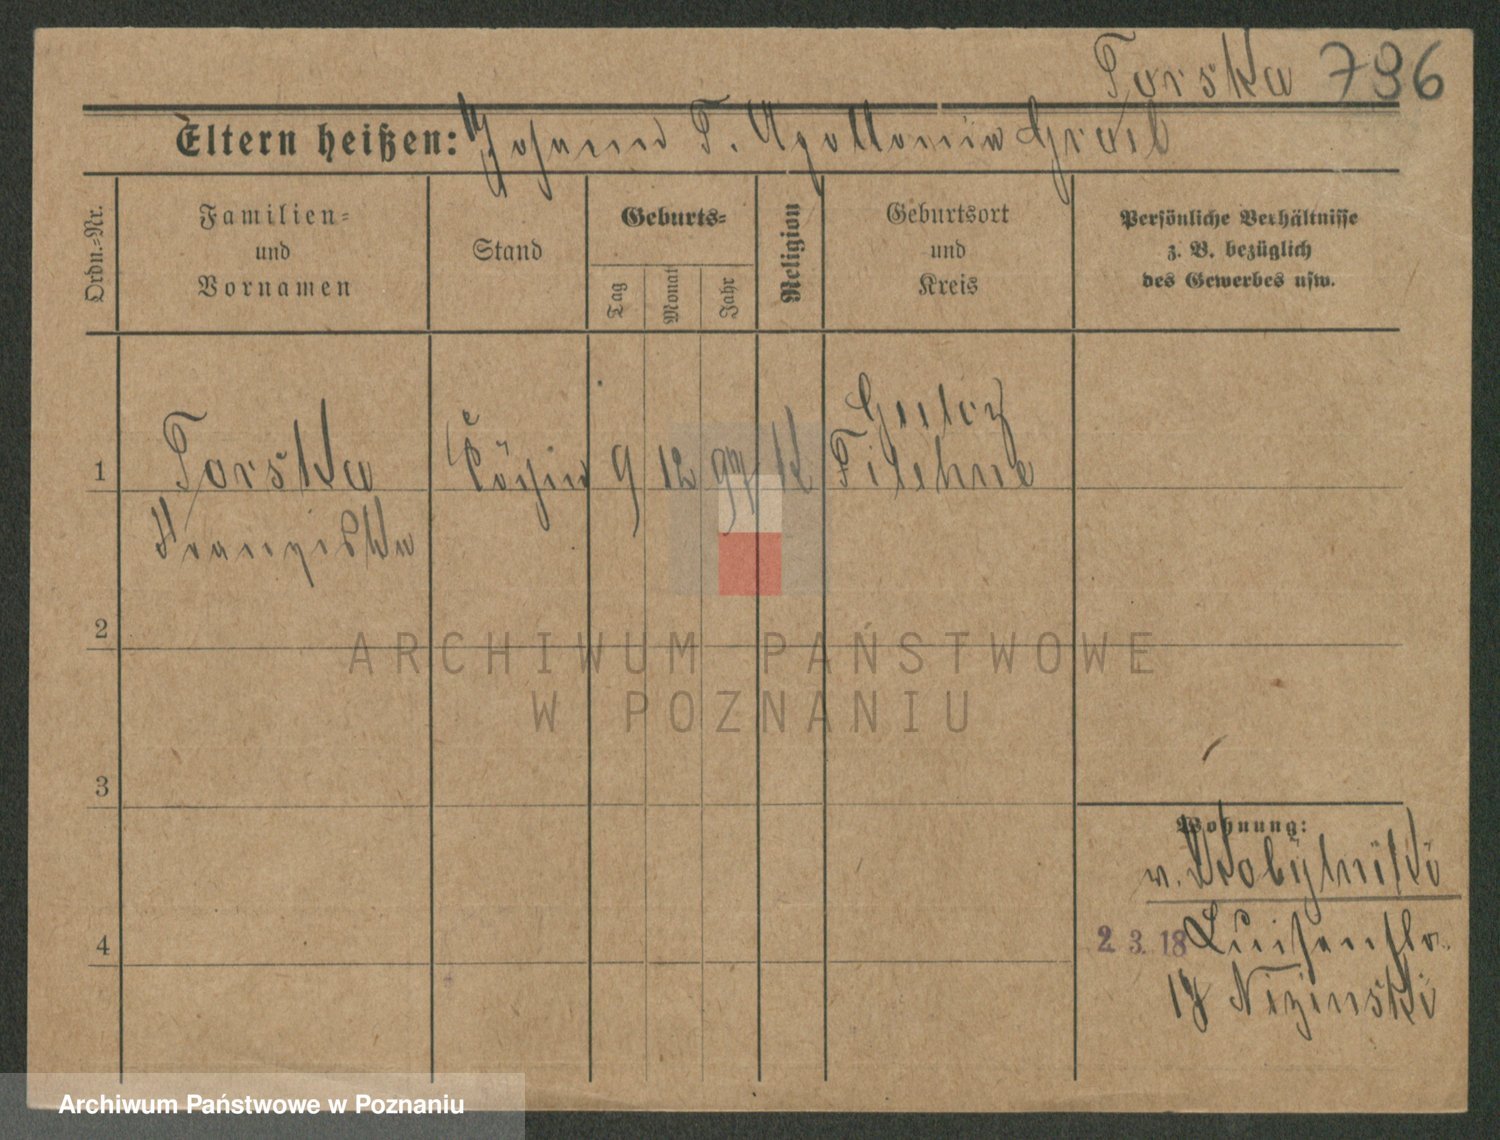 Torska 796
Eltern heißen: Johann T. Apollonia
Ordn.-Nr.
Familien-
und
Vornamen
Stand
Geburts-
Tag
Monat
Jahr
Religion
Geburtsort
und
Kreis
Persönliche Verhältnisse
z. B. bezüglich
des Gewerbes usw.
1
Torska
Franziska
Köchin
9 12 97 K
Filehne
2
ARCHIWUM PAŃSTWOWE
W POZNANIU
3
4
Wohnung:
v.
2. 3. 18 Luisenstr.
17 Nizinski
Archiwum Państwowe w Poznaniu